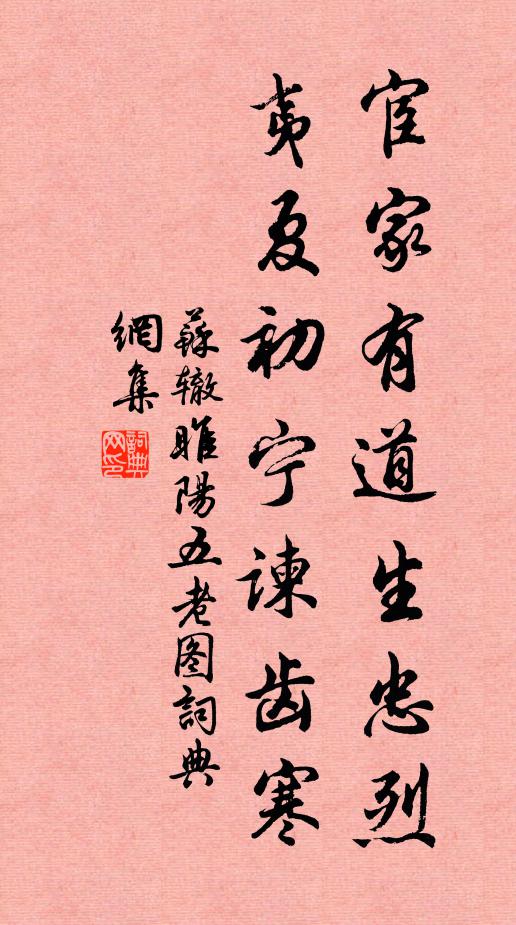 宦家有道生忠烈
夷夏初宁谏齿寒
蘇辙睢陽五老图詞典
網集
詞典
网印